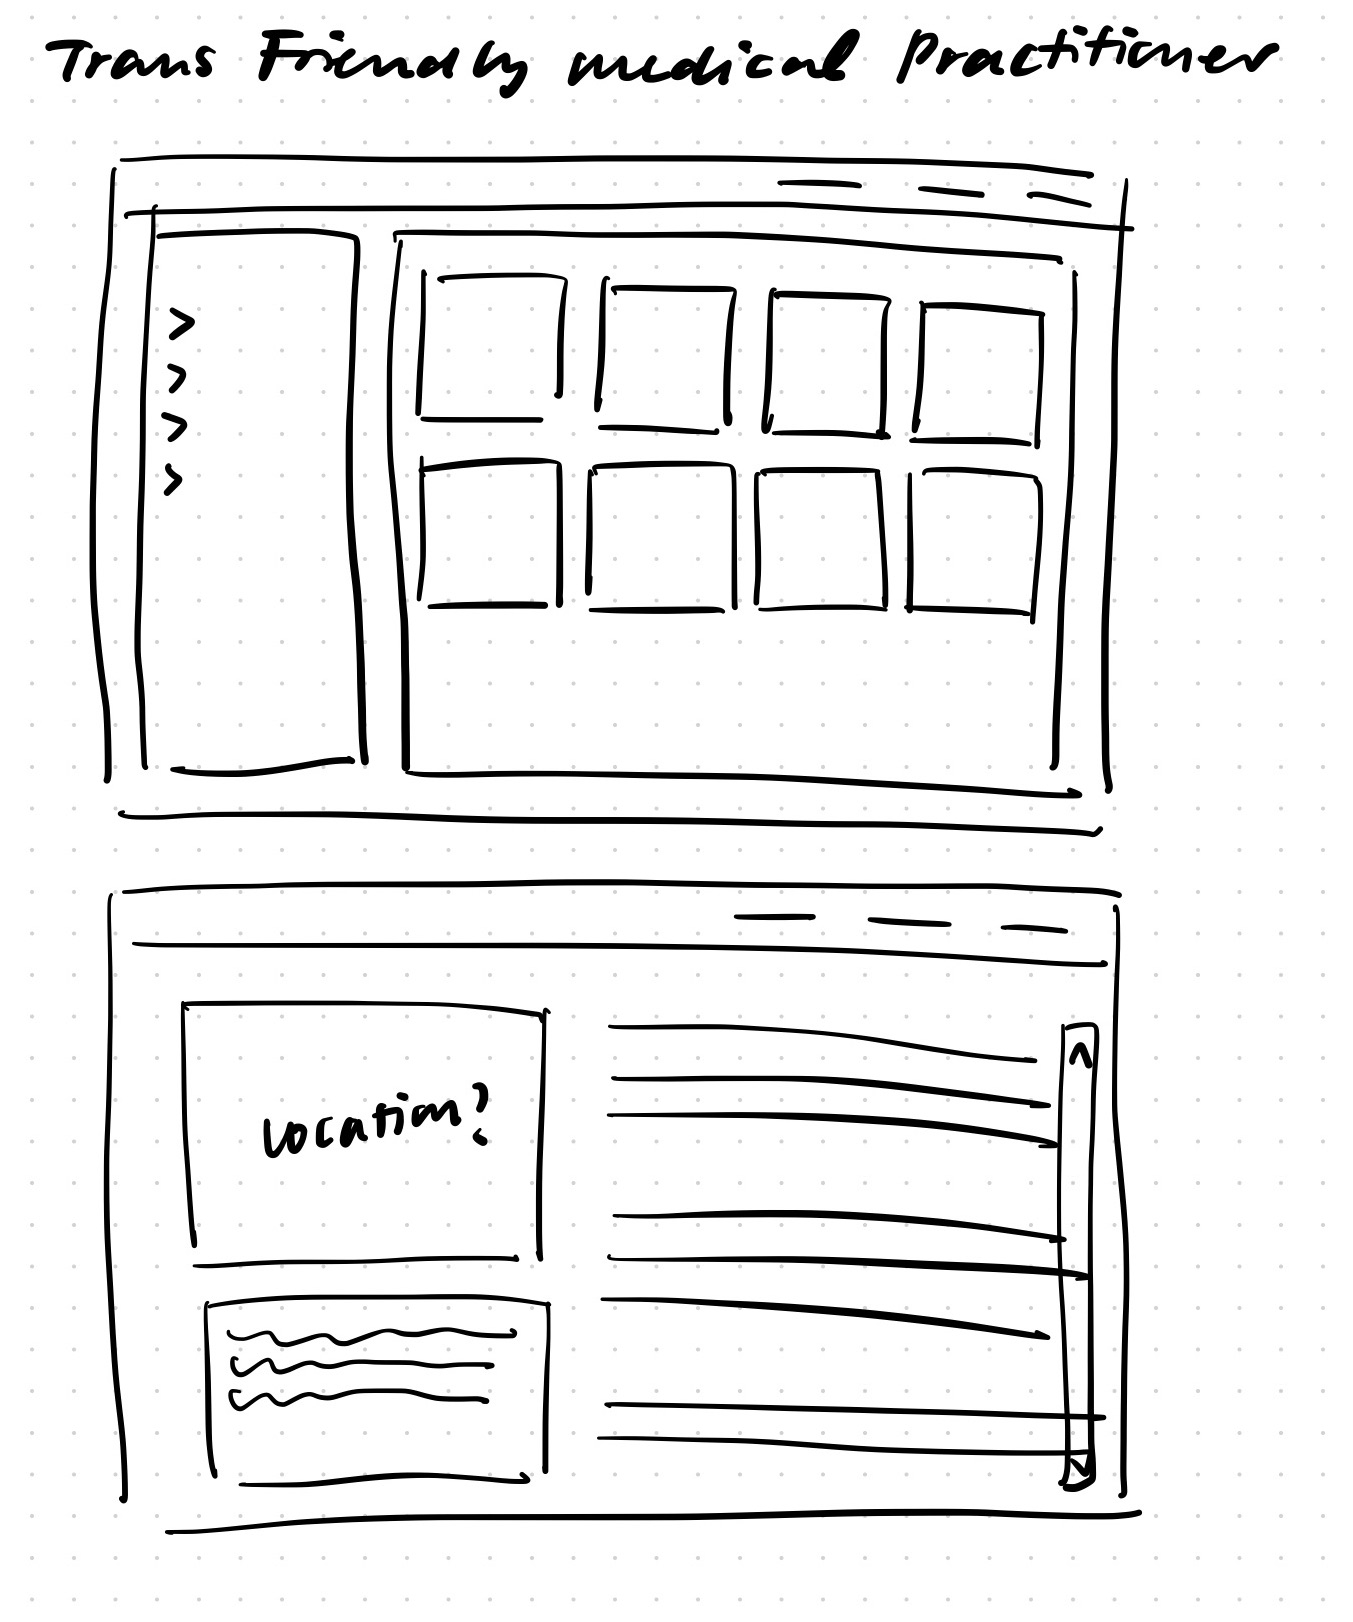 Trans Friendly medical Practitioner
location?